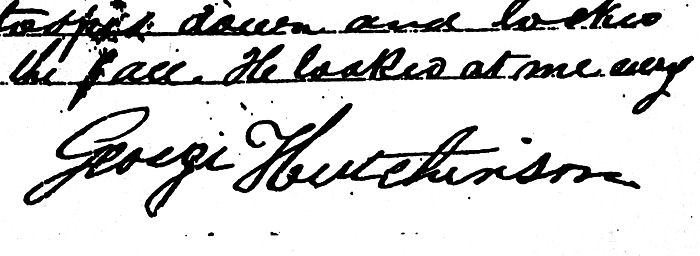 stooped down and looked
the face. He looked at me very
George Hutchinson